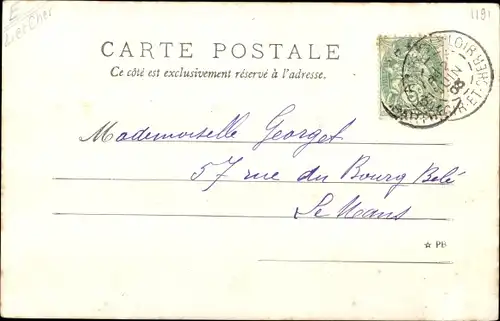 E
Loir Cher
1191
CARTE POSTALE
Ce côté est exclusivement réservé à l'adresse.
LOIR-ET-CHER
Mademoiselle Georget
57 rue du Bourg Belé
Le Mans
☆ PB